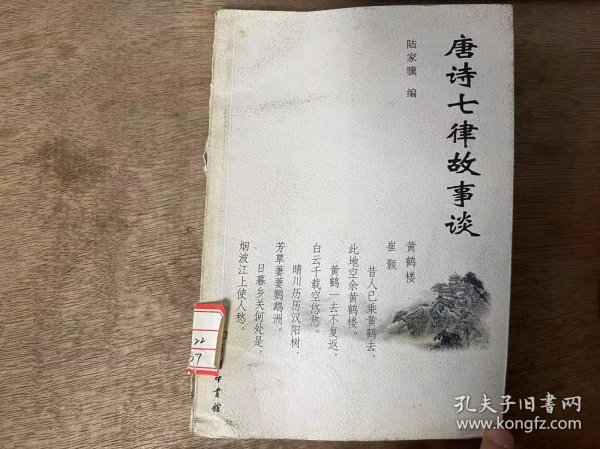 唐诗七律故事谈
陆家骥 编
黄鹤楼
崔颢
昔人已乘黄鹤去，
此地空余黄鹤楼。
黄鹤一去不复返，
白云千载空悠悠。
晴川历历汉阳树，
芳草萋萋鹦鹉洲。
日暮乡关何处是，
烟波江上使人愁。
印书馆
22
37
孔夫子旧书网
www.kongfz.com